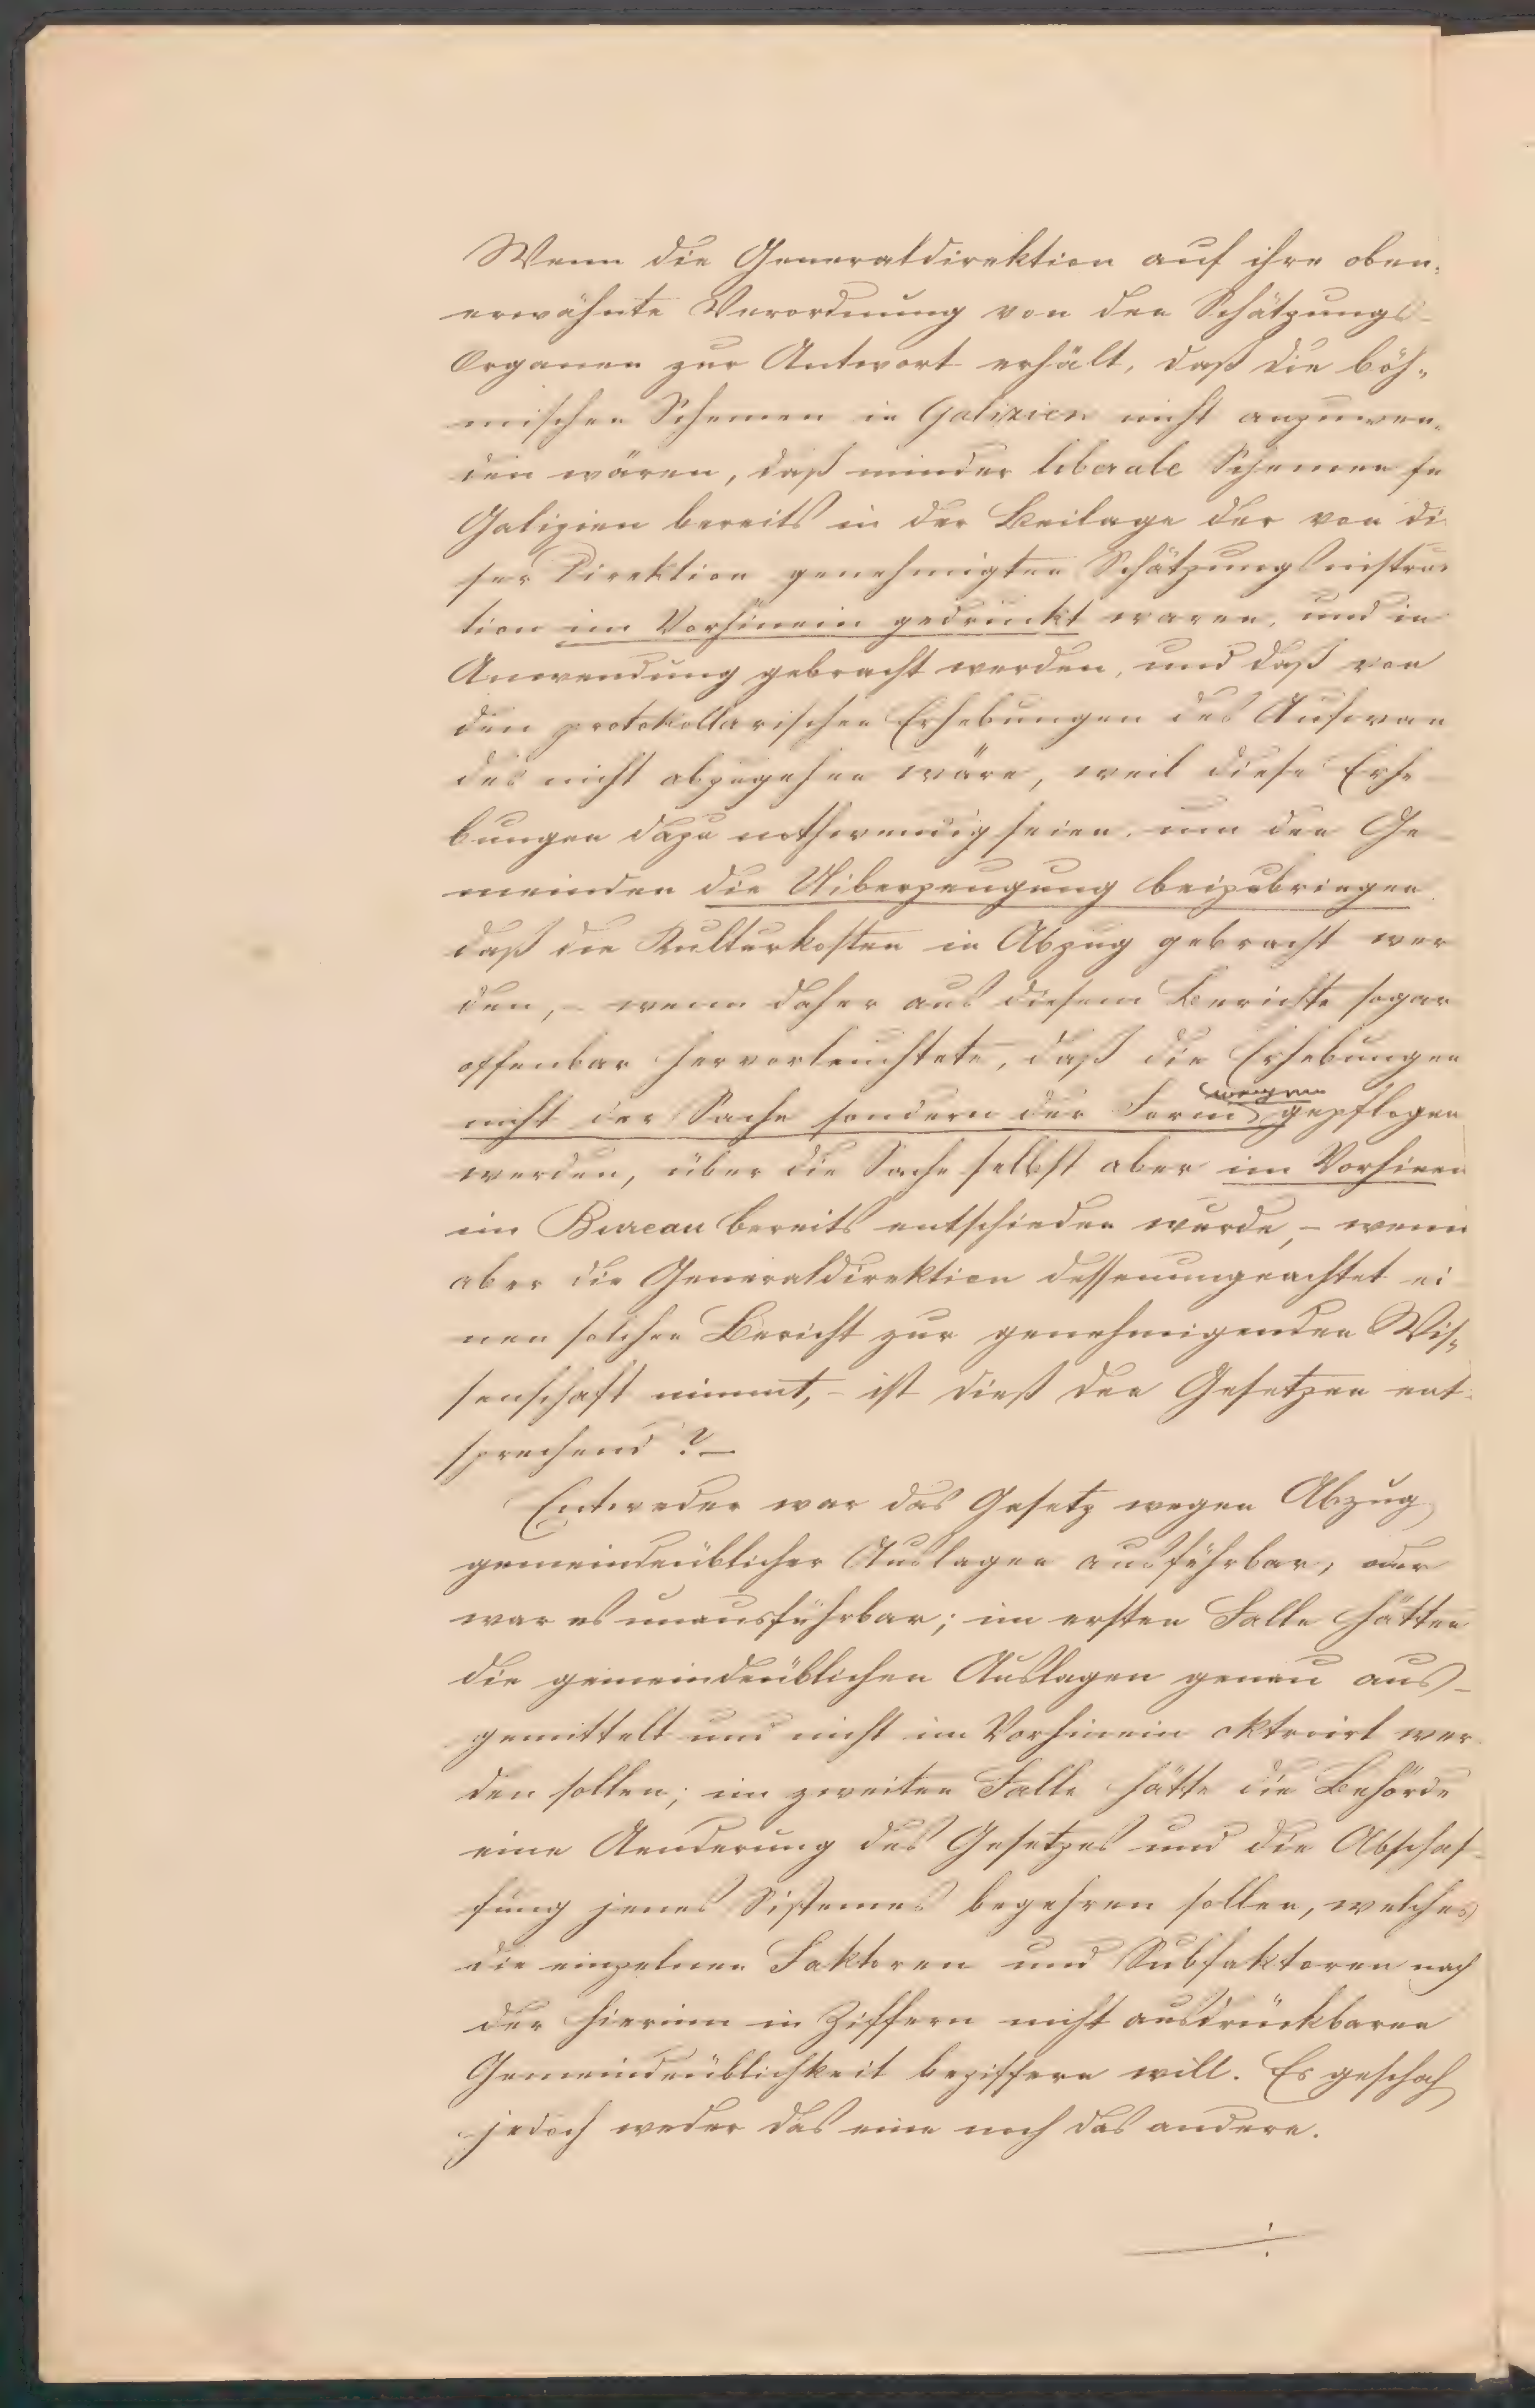 Wenn die Generaldirektion auf ihre oben-
erwähnte Verordnung von den Schätzungs-
Organen zur Antwort erhält, daß die böh-
mischen Schemen in Galizien nicht anzuwen-
den wären, daß minder liberale Schemen für
Galizien bereits in der Beilage der von die
ser Direktion genehmigten Schätzungsinstruc
tion im Vorhinein gedruckt waren, und in
Anwendung gebracht werden, und daß von
den protokollarischen Erhebungen des Aufwan
des nicht abzugehen wäre, weil diese Erhe
bungen dazu nothwendig seien, um den Ge
meinden die Uiberzeugung beizubringen
daß die Kulturkosten in Abzug gebracht wer
den, – wenn daher aus diesem Berichte sogar
offenbar hervorleuchtete, daß die Erhebungen
nicht der Sache sondern der Form wegen gepflogen
werden, über die Sache selbst aber im Vorhinein
im Bureau bereits entschieden wurde, – wenn
aber die Generaldirektion dessenungeachtet ei
nen solchen Bericht zur genehmigenden Wis-
senschaft nimmt, – ist dieß den Gesetzen ent-
sprechend? –
Entweder war das Gesetz wegen Abzug
gemeindeüblicher Auslagen ausführbar, oder
war es unausführbar; im ersten Falle hätten
die gemeindeüblichen Auslagen genau aus-
gemittelt und nicht im Vorhinein oktroirt wer
den sollen; im zweiten Falle hätte die Behörde
eine Aenderung des Gesetzes und die Abschaf-
fung jenes Sistemes begehren sollen, welches
die einzelnen Faktoren und Subfaktoren nach
der hierinn in Ziffern nicht ausdrückbaren
Gemeindeüblichkeit beziffern will. Es geschah
jedoch weder das eine noch das andere.